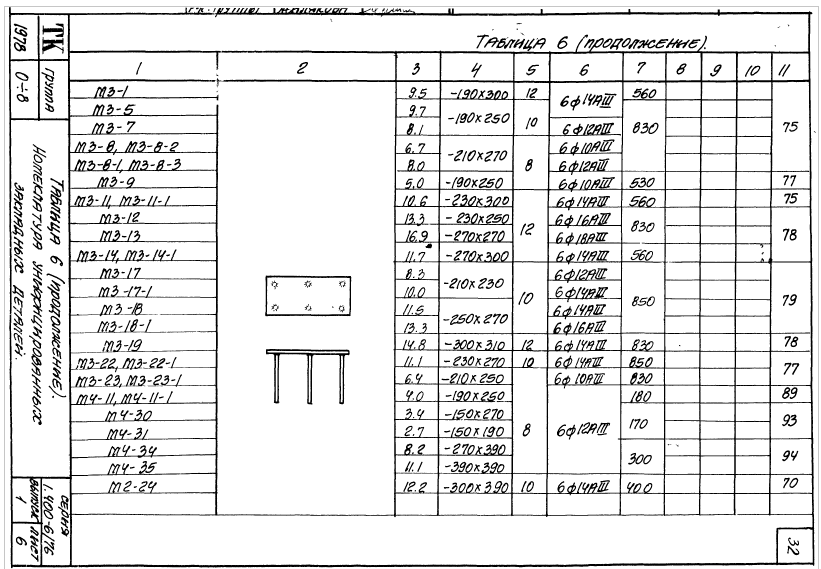 Таблица 6 (продолжение).
1 2 3 4 5 6 7 8 9 10 11
М3-1 9.5 -190×300 12 6ф14АIII 560 75
М3-5 9.7 -190×250 10
М3-7 8.1 6ф12АIII 830
М3-8, М3-8-2 6.7 -210×270 8 6ф10АIII
М3-8-1, М3-8-3 8.0 6ф12АIII
М3-9 5.0 -190×250 6ф10АIII 530 77
М3-11, М3-11-1 10.6 -230×300 12 6ф14АIII 560 75
М3-12 13.3 -230×250 6ф16АIII 830 78
М3-13 16.9 -270×270 6ф18АIII
М3-14, М3-14-1 11.7 -270×300 6ф14АIII 560
М3-17 8.3 -210×230 10 6ф12АIII 850 79
М3-17-1 10.0 6ф14АIII
М3-18 11.5 -250×270 6ф14АIII
М3-18-1 13.3 6ф16АIII
М3-19 14.8 -300×310 12 6ф14АIII 830 78
М3-22, М3-22-1 11.1 -230×270 10 6ф14АIII 850 77
М3-23, М3-23-1 6.4 -210×250 8 6ф10АIII 830
М4-11, М4-11-1 4.0 -190×250 6ф12АIII 180 89
М4-30 3.4 -150×270 170 93
М4-31 2.7 -150×190
М4-34 8.2 -270×390 300 94
М4-35 11.1 -390×390
М2-24 12.2 -300×390 10 6ф14АIII 400 70
32
ТК
1978
группа
0÷8
Таблица 6 (продолжение).
Номенклатура унифицированных
закладных деталей.
серия
1.400-6/76
выпуск лист
1 6